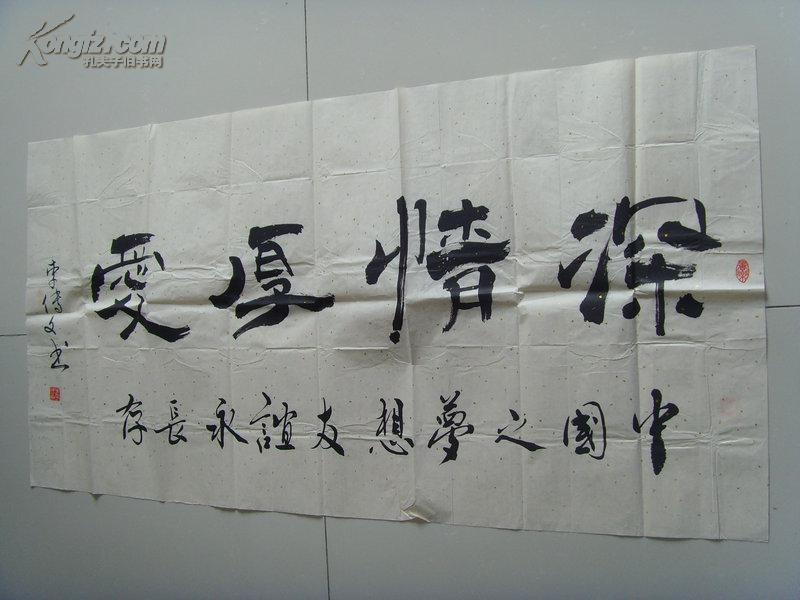 Kongfz.com
孔夫子旧书网
深情厚愛
中國之夢想友誼永長存